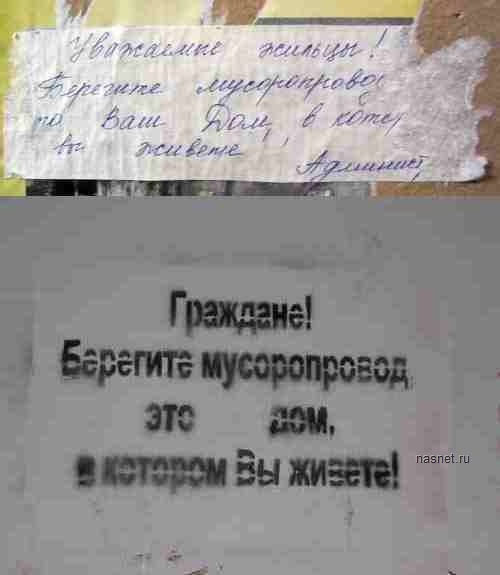 Уважаемые жильцы!
Берегите мусоропровод
то Ваш Дом, в кото
вы живете!
Админист
Граждане!
Берегите мусоропровод
это дом,
в котором Вы живете!
nasnet.ru